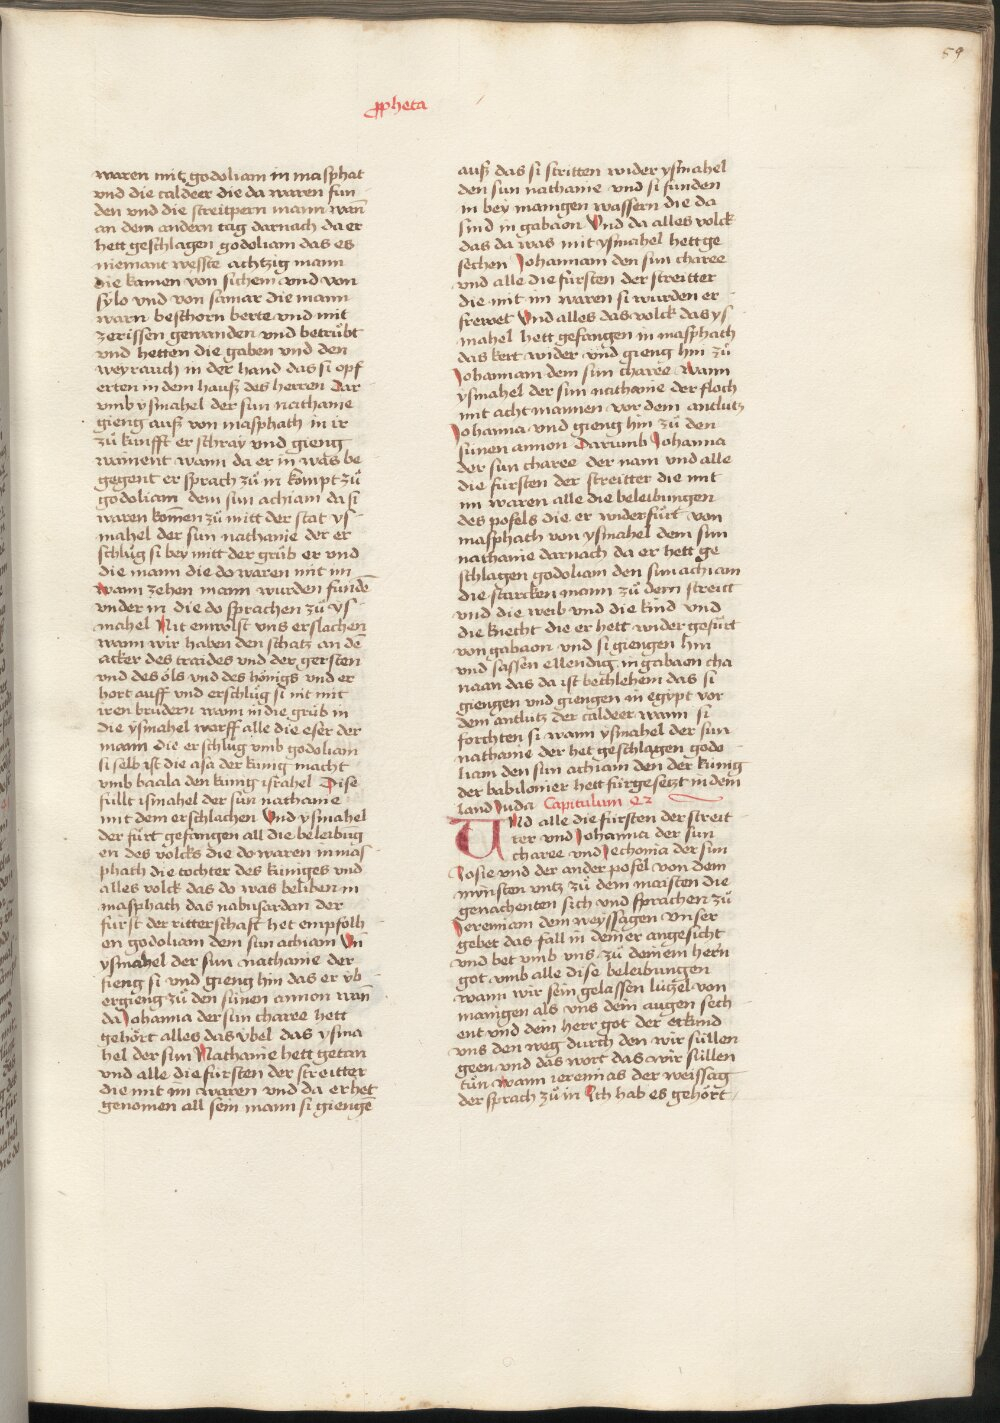 59
ꝓpheta
waren mit godoliam in masphat
vnd die caldeer die da waren fun
den vnd die streitpern mann wañ
an dem andern tag darnach da er
hett geschlagen godoliam das es
niemant wesste achtzig mann
die kamen von sichem vnd von
sylo vnd von samar die mann
warn beschorn berte vnd mit
zerissen gewanden vnd betrůbt
vnd hetten die gaben vnd den
weyrauch in der hand das si opf
erten in dem hauß des herren Dar
vmb ysmahel der sun nathanie
gieng auß von masphath in ir
zů kunfft er schray vnd gieng
wainent wann da er in was be
gegent er sprach zů in kompt zů
godoliam dem sun achiam da si
waren kom̄en zů mitt der stat ys
mahel der sun nathanie der er
schlůg si bey mitt der grůb er vnd
die mann die do waren mit im
wann zehen mann wurden fundē
vnder in die do sprachen zů ys
mahel Nit enwolst vns erslachen
wann wir haben den schatz an dē
acker des traides vnd der gersten
vnd des öls vnd des hönigs vnd er
hort auff vnd erschlůg si nit mit
iren brudern wann in die grůb in
die ysmahel warff alle die eser der
mann die er schlug vmb godoliam
si selb ist die asa der kunig macht
vmb baala den kunig israhel Dise
füllt ismahel der sun nathanie
mit dem erschlachen Vnd ysmahel
der fürt gefangen all die beleibug
en des volcks die do waren in mas
phath die tochter des kuniges vnd
alles volck das do was beliben in
masphath das nabusardan der
fürst der ritterschaft het empfolh
en godoliam dem sun achiam Vn̄
ysmahel der sun nathanie der
fieng si vnd gieng hin das er vb
ergieng zů den sünen amon wañ
da Johanna der sun charee hett
gehört alles das vbel das ysma
hel der sun Nathanie hett getan
vnd alle die fürsten der streitter
die mit im waren vnd da er het
genomen all sein mann si giengē
auß das si stritten wider ysmahel
den sun nathanie vnd si funden
in bey manigen wassern die da
sind in gabaon Vnd da alles volck
das da was mit ysmahel hett ge
sechen Johannam den sun charee
vnd alle die fürsten der streitter
die mit im waren si wurden er
frewet Vnd alles das volck das ys
mahel hett gefangen in masphach
das kert wider vnd gieng hin zů
Johannam dem sun charee Wann
ysmahel der sun nathanie der floch
mit acht mannen vor dem antlutz
Johanna vnd gieng hin zů den
sünen amon Darumb Johanna
der sun charee der nam vnd alle
die fürsten der streitter die mit
im waren alle die beleibungen
des pofels die er widerfůrt von
masphath von ysmahel dem sun
nathanie darnach da er hett ge
schlagen godoliam den sun achiam
die starcken mann zů dem streitt
vnd die weib vnd die kind vnd
die knecht die er hett wider gefůrt
von gabaon vnd si giengen hin
vnd sassen ellendig in gabaon cha
naan das da ist bethlehem das si
giengen vnd giengen in egypt vor
dem antlutz der caldeer wann si
forchten si wann ysmahel der sun
nathanie der het geschlagen godo
liam den sun achiam den der kunig
der babilonier hett fürgesetzt in dem
land Juda Capitulum 42
Und alle die fürsten der streit
ter vnd Johanna der sun
charee vnd Jechonia der sun
Josie vnd der ander pofel von dem
minsten vntz zů dem maisten die
genachenten sich vnd sprachen zů
Jeremiam dem weyssagen vnser
gebet das fall in deiner angesicht
vnd bet vmb vns zů deinem hern
got vmb alle dise beleibungen
wann wir sein gelassen lützel von
manigen als vns dein augen sech
ent vnd dein herr got der erkund
vns den weg durch den wir süllen
geen vnd das wort das wir süllen
tůn Wann ieremias der weissag
der sprach zů in Ich hab es gehört